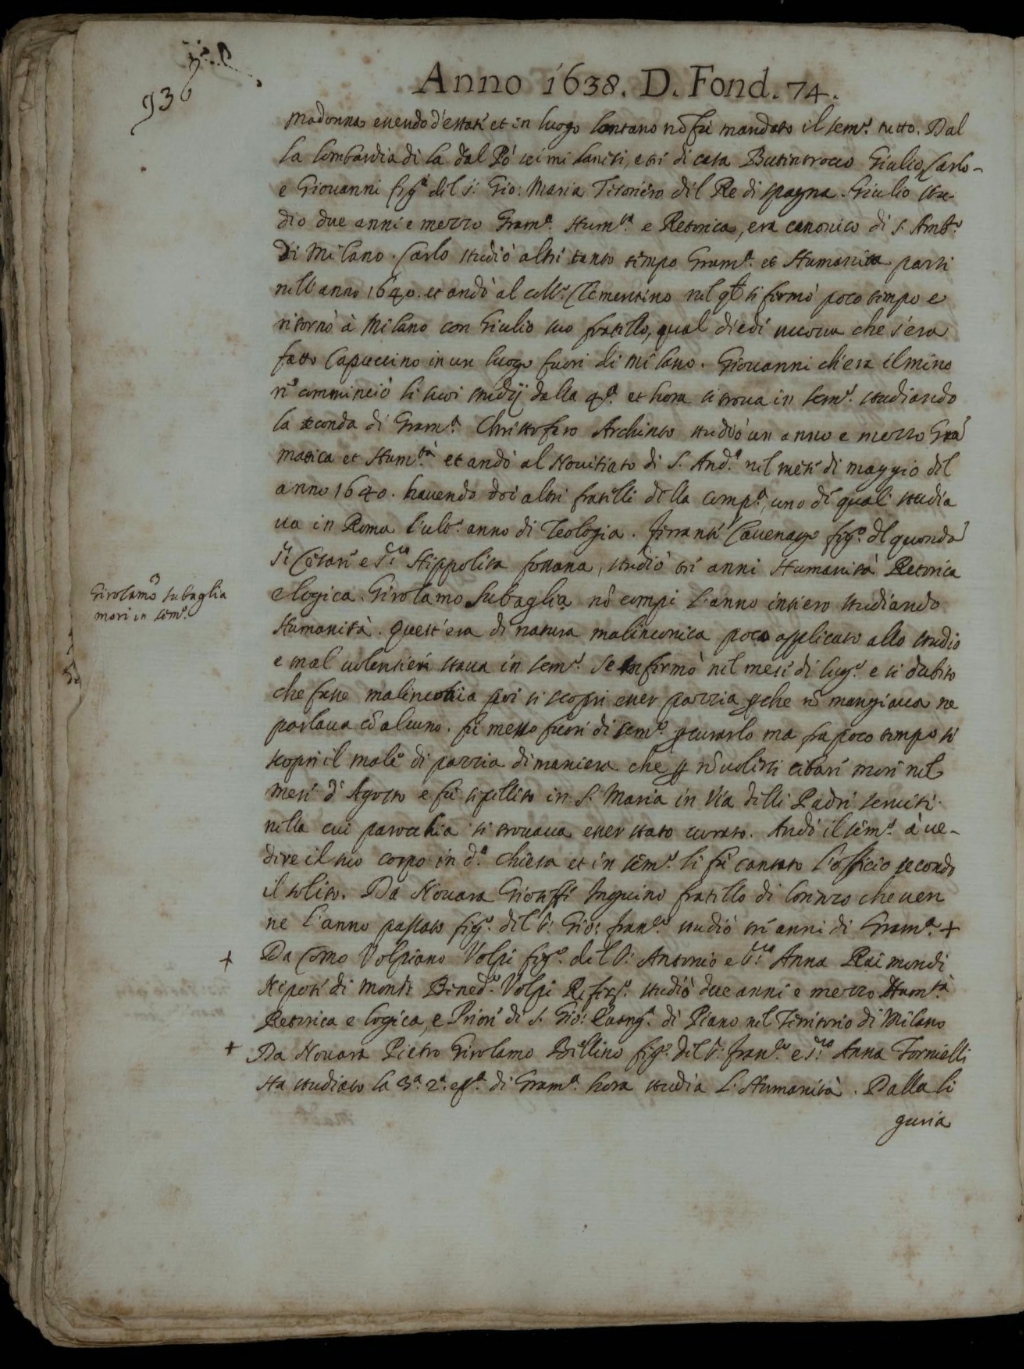 936
Anno 1638. D. Fond. 74.
Madonna essendo d'estate et in luogo lontano nõ fù mandato il sem.º tutto. Dal
la Lombardia di la dal Pò li Giulio Carlo
e Giovanni fig.li del S.r Gio: Maria Tesoriero del Re di Spagna. Giulio stu-
diò due anni e mezzo Gram.a Hum.tà e Retorica, era canonico di S. Amb.o
di Milano. Carlo studiò altri tanto tempo Gram.a et Humanità partì
nell'anno 1640. et andò al coll.o Clementino nel si fermò poco tempo e
ritornò à Milano con Giulio suo fratello, qual diede nuova che s'era
fatto Capuccino in un luogo fuori di Milano. Giovanni ch'era il mino
re comminciò li suoi studij dalla 4.a et hora si trova in sem.o studiando
la seconda di Gram.a Christofero Archinto studiò un anno e mezzo Gra
matica et Hum.tà et andò al Novitiato di S. And.a nel mese di maggio del
anno 1640. havendo doi altri fratelli della comp.a, uno de quali studia
va in Roma l'ult.o anno di Teologia. Cavenago fig.o del quondã
S.r Cesare e S.ra Hippolita fossana, studiò trè anni Humanità Retorica
Girolamo Subaglia
e logica. Girolamo Subaglia nõ compì l'anno intiero studiando
morì in sem.o
Humanità. Quest'era di natura malinconica poco applicato allo studio
e mal volentieri stava in sem.o Se infermò nel mese di lug.o e si dubitò
che fusse malinconia poi si scoprì esser pazzia pche nõ mangiava ne
parlava cõ alcuno. fù messo fuori di sem.o p curarlo ma fra poco tempo si
scoprì il male di pazzia di maniera che p nõ volersi cibare morì nel
mese d'Agosto e fù sepellito in S. Maria in Via delli Padri Serviti
nella cui parochia si trovava esser stato curato. Andò il sem.o à ve-
dire il suo corpo in d.a chiesa et in sem.o li fù cantato l'officio secondo
il solito. Da Novara Gioseffe Inguino fratello di Lorenzo che ven
ne l'anno passato fig.o del S.r Gio: Fran.co studiò trè anni di Gram.a +
+ Da Como Volpiano Volpi fig.o del S.r Antonio e S.ra Anna Raimondi
Nipote di Mons.r Bened.o Volpi studiò due anni e mezzo Hum.tà
Retorica e logica, e Priore di S. Gio: Evang.a di Piano nel Territorio di Milano
+ Da Novara Pietro Girolamo Bellino fig.o del S.r Fran.co e S.ra Anna Tornielli
Ha studiato la 3.a 2.a e p.a di Gram.a hora studia l'Humanità. Dalla li
guria